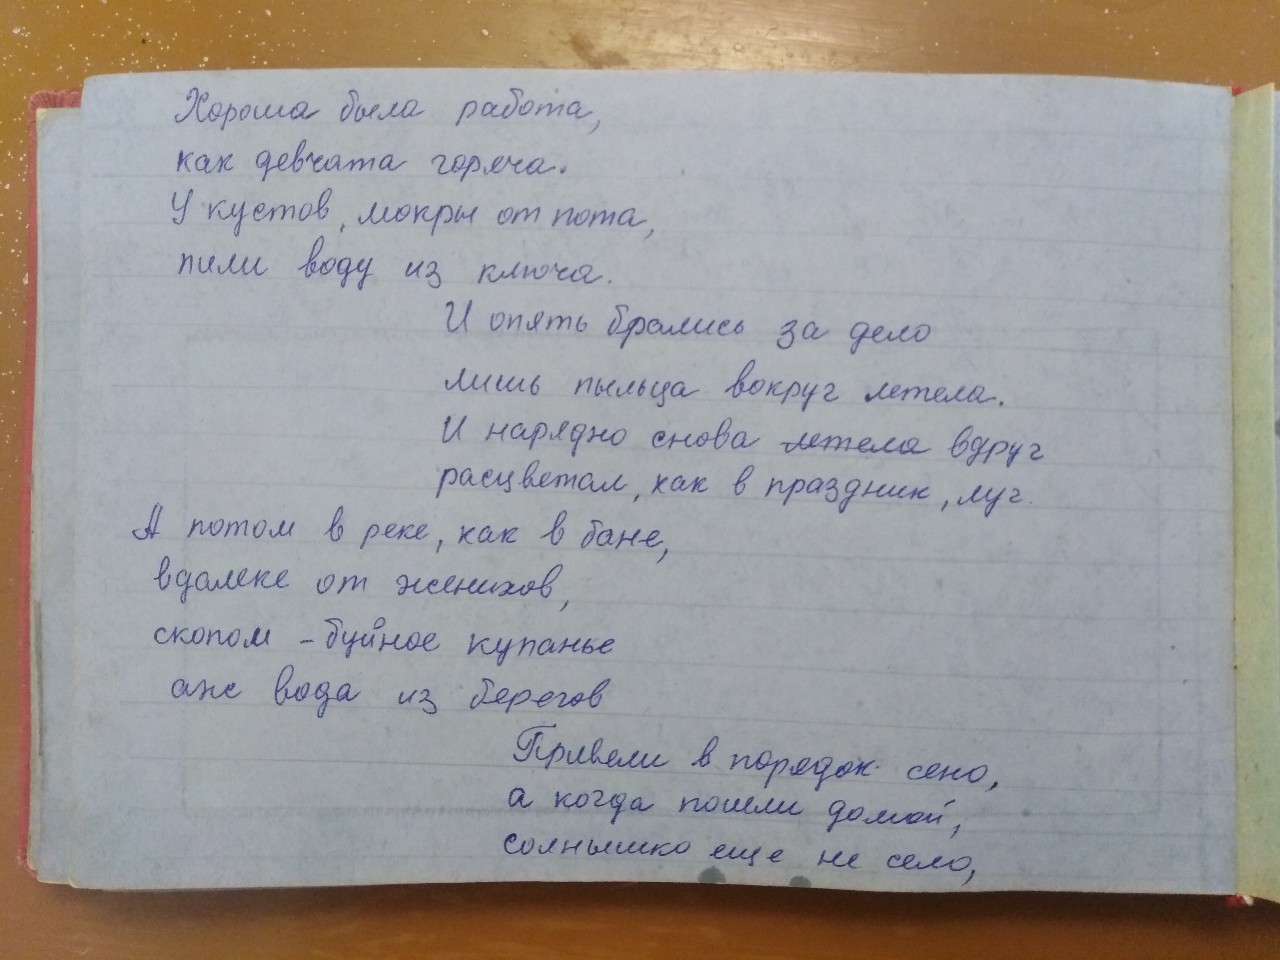 Хороша была работа,
как девчата горяча.
У кустов, мокры от пота,
пили воду из ключа.
И опять брались за дело
лишь пыльца вокруг летела.
И нарядно снова летела вдруг
расцветал, как в праздник, луг.
А потом в реке, как в бане,
вдалеке от женихов,
скопом - буйное купанье
аж вода из берегов
Привели в порядок сено,
а когда пошли домой,
солнышко еще не село,